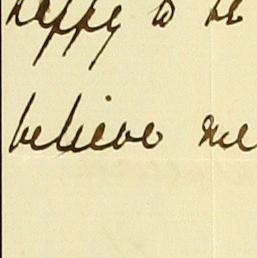 happy to be
believe me